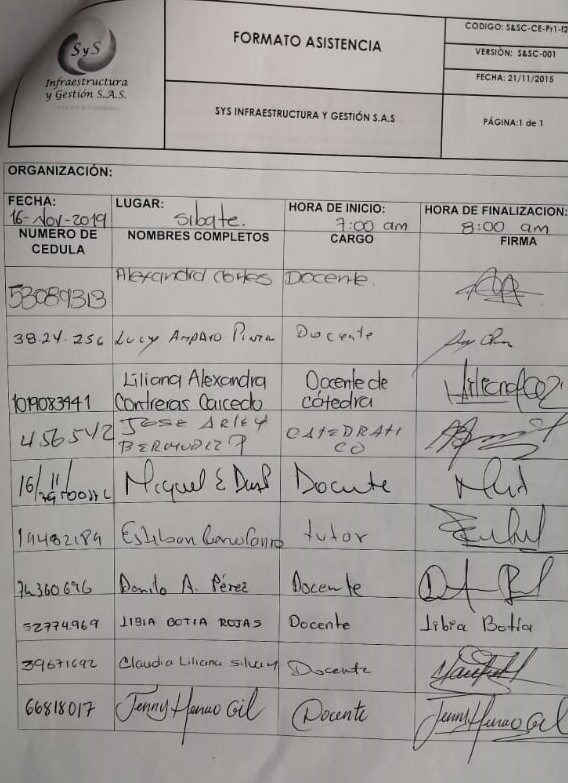 SyS
Infraestructura
y Gestión S.A.S.
FORMATO ASISTENCIA
SYS INFRAESTRUCTURA Y GESTIÓN S.A.S
CODIGO: S&SC-CE-Pr1-f2
VERSIÓN: S&SC-001
FECHA: 21/11/2015
PÁGINA:1 de 1
ORGANIZACIÓN:
FECHA: 16-Nov-2019 LUGAR: Sibate. HORA DE INICIO: 7:00 am HORA DE FINALIZACION: 8:00 am
NUMERO DE CEDULA NOMBRES COMPLETOS CARGO FIRMA
53089313 Alexandra Cortes Docente.
38.24.256 Lucy Amparo Docente
1019083941 Liliana Alexandra Contreras Caicedo Docente de cátedra
456542 JOSE ARLEY CATEDRATICO
16/11/ Miguel E Docente
19482189 Esteban tutor
74360.696 Danilo A. Pérez Docente
52774969 LIBIA BOTIA ROJAS Docente Libia Botía
39671692 Claudia Liliana Docente
66818017 Jenny Henao Gil Docente Jenny Henao Gil